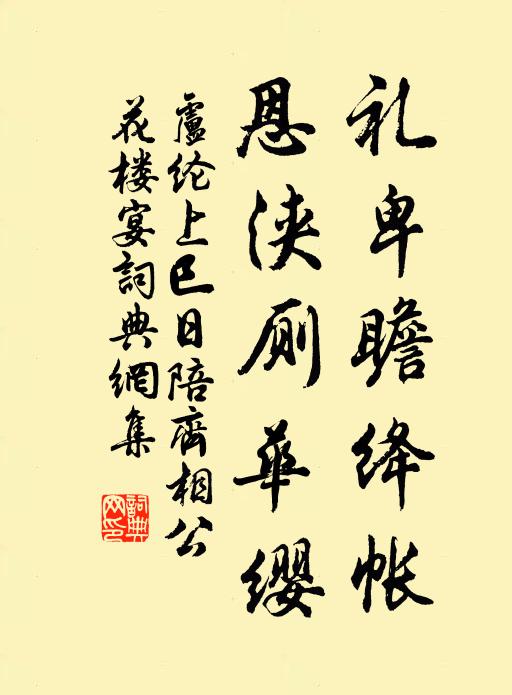 礼卑瞻绛帐
恩浃厕华缨
卢纶上巳日陪齐相公
花楼宴词典网集
词典网印